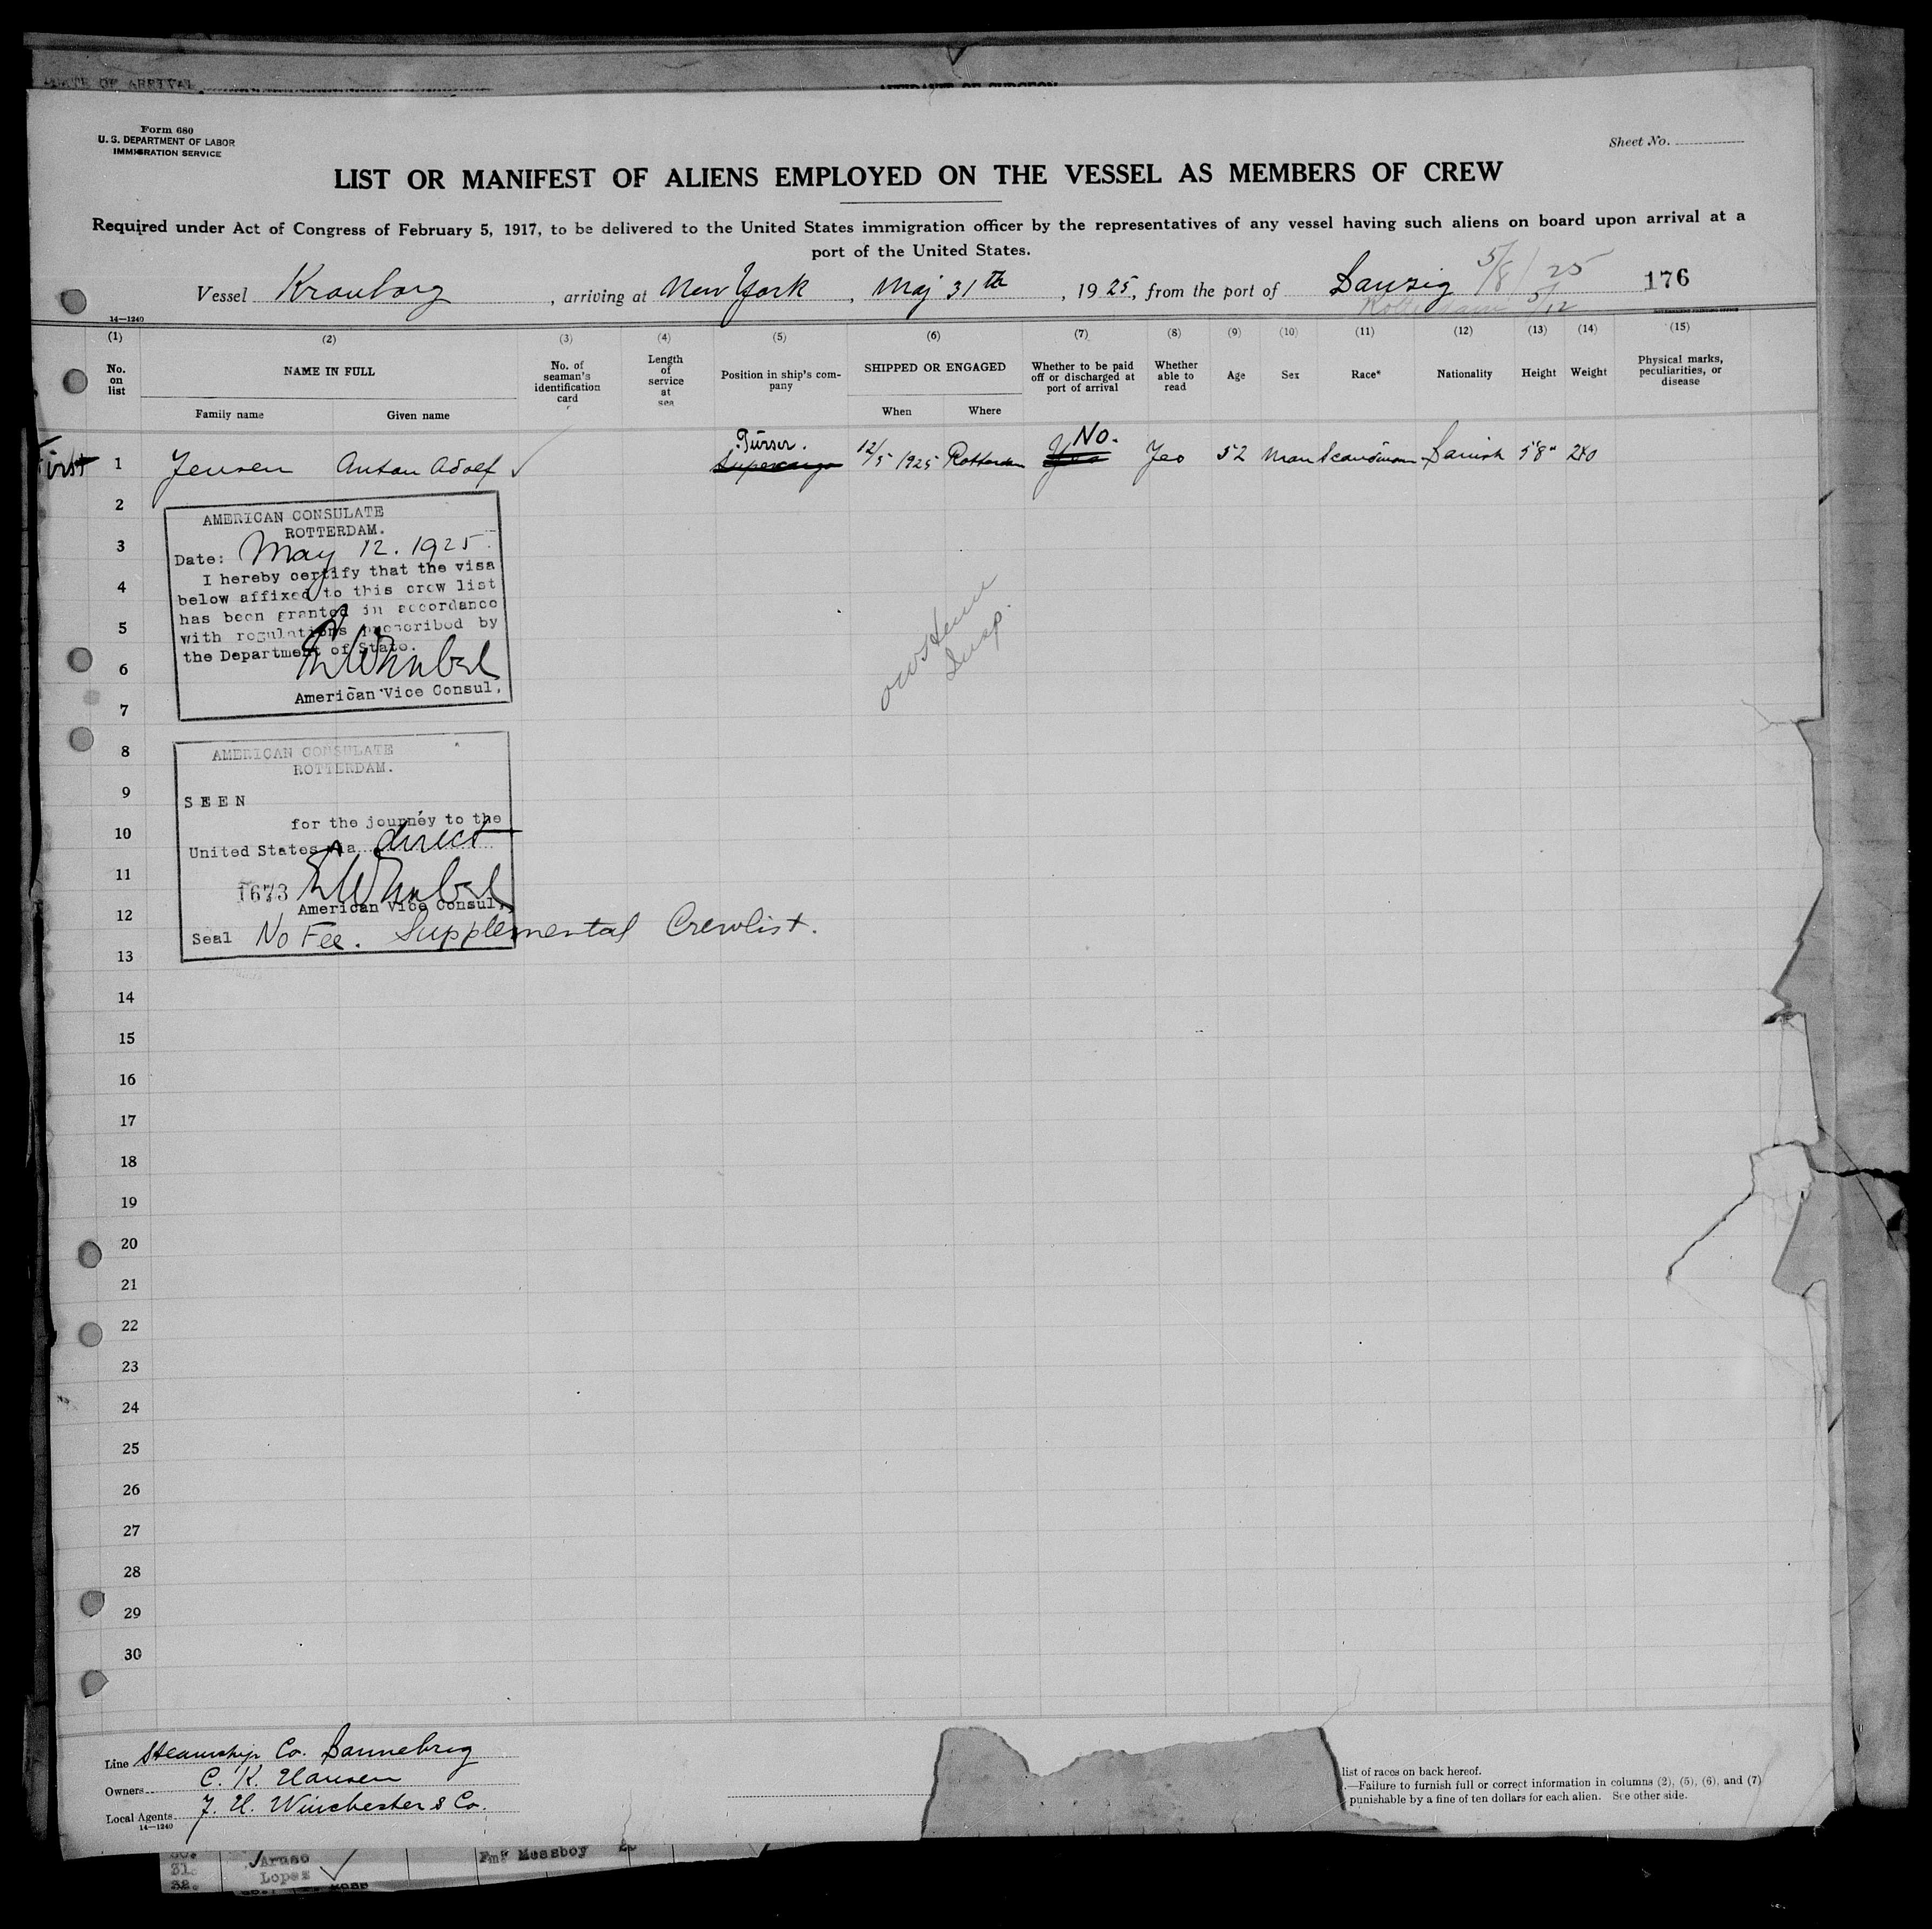 DATE OF ARRIVAL
AFFIDAVIT OF SURGEON
Form 680
U. S. DEPARTMENT OF LABOR
IMMIGRATION SERVICE
Sheet No.
LIST OR MANIFEST OF ALIENS EMPLOYED ON THE VESSEL AS MEMBERS OF CREW
Required under Act of Congress of February 5, 1917, to be delivered to the United States immigration officer by the representatives of any vessel having such aliens on board upon arrival at a
port of the United States.
Vessel Kronborg, arriving at New York, Maj 31th, 1925, from the port of Danzig 5/8/25 176
Rotterdam 5/12
14—1240
(1) (2) (3) (4) (5) (6) (7) (8) (9) (10) (11) (12) (13) (14) (15)
No. on list
NAME IN FULL
Family name
Given name
No. of seaman's identification card
Length of service at sea
Position in ship's company
SHIPPED OR ENGAGED
When
Where
Whether to be paid off or discharged at port of arrival
Whether able to read
Age
Sex
Race*
Nationality
Height
Weight
Physical marks, peculiarities, or disease
Purser. No.
First 1 Jensen Anton Adolf ✓ Supercargo 12/5 1925 Rotterdam Yes Yes 52 Man Scandinavian Danish 5'8" 240
2
3
4
5
6
7
8
9
10
11
12
13
14
15
16
17
18
19
20
21
22
23
24
25
26
27
28
29
30
AMERICAN CONSULATE
ROTTERDAM.
Date: May 12. 1925.
I hereby certify that the visa
below affixed to this crew list
has been granted in accordance
with regulations prescribed by
the Department of State.
American Vice Consul,
Insp.
AMERICAN CONSULATE
ROTTERDAM.
SEEN
for the journey to the
United States via direct
1673
American Vice Consul,
Seal No Fee. Supplemental Crewlist.
Line Steamship Co. Dannebrog
Owners C. K. Hansen
Local Agents J. H. Winchester & Co.
14—1240
list of races on back hereof.
.—Failure to furnish full or correct information in columns (2), (5), (6), and (7)
punishable by a fine of ten dollars for each alien. See other side.
30.
31. Aruso Messboy
32. Lopez